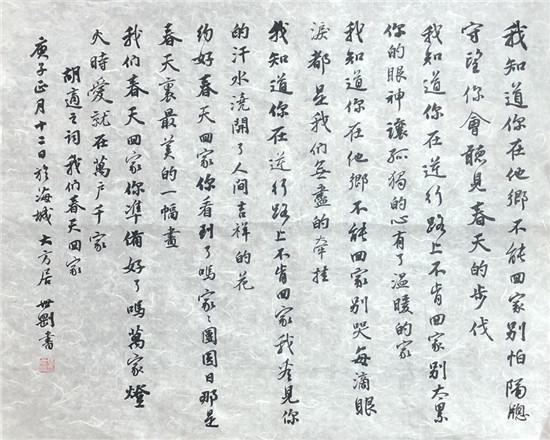 我知道你在他鄉不能回家別怕隔牕
守望你會聽見春天的步伐
我知道你在逆行路上不肯回家別太累
你的眼神讓孤獨的心有了温暖的家
我知道你在他鄉不能回家別哭每滴眼
淚都是我們無盡的牽挂
我知道你在逆行路上不肯回家我看見你
的汗水澆開了人間吉祥的花
約好春天回家你看到了嗎家〻團圓日那是
春天裏最美的一幅畫
我们春天回家你準備好了嗎萬家燈
火時愛就在萬户千家
胡適之词我们春天回家
庚子正月十二日於海城大方居 世劉書